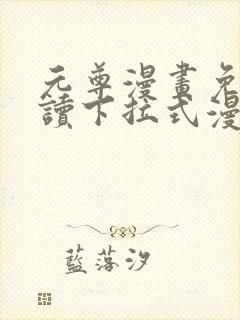 元尊漫畫免
讀下拉式漫
藍落汐